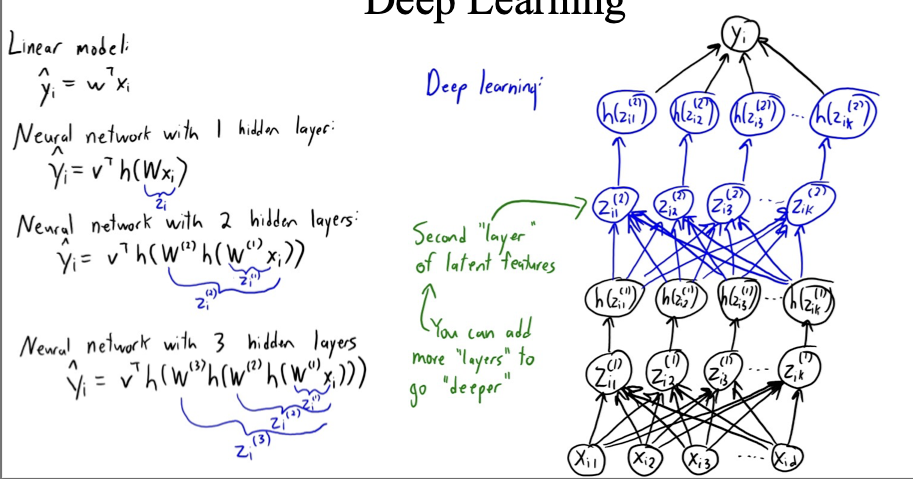 Deep Learning
Linear model:
ŷᵢ = wᵀxᵢ
Neural network with 1 hidden layer:
ŷᵢ = vᵀh(Wxᵢ)
zᵢ
Neural network with 2 hidden layers:
ŷᵢ = vᵀh(W⁽²⁾h(W⁽¹⁾xᵢ))
zᵢ⁽¹⁾
zᵢ⁽²⁾
Neural network with 3 hidden layers
ŷᵢ = vᵀh(W⁽³⁾h(W⁽²⁾h(W⁽¹⁾xᵢ)))
zᵢ⁽¹⁾
zᵢ⁽²⁾
zᵢ⁽³⁾
Deep learning:
Second "layer"
of latent features
You can add
more "layers" to
go "deeper"
yᵢ
h(zᵢ₁⁽²⁾) h(zᵢ₂⁽²⁾) h(zᵢ₃⁽²⁾) ... h(zᵢₖ⁽²⁾)
zᵢ₁⁽²⁾ zᵢ₂⁽²⁾ zᵢ₃⁽²⁾ ... zᵢₖ⁽²⁾
h(zᵢ₁⁽¹⁾) h(zᵢ₂⁽¹⁾) h(zᵢ₃⁽¹⁾) ... h(zᵢₖ⁽¹⁾)
zᵢ₁⁽¹⁾ zᵢ₂⁽¹⁾ zᵢ₃⁽¹⁾ ... zᵢₖ⁽¹⁾
xᵢ₁ xᵢ₂ xᵢ₃ ... x_id